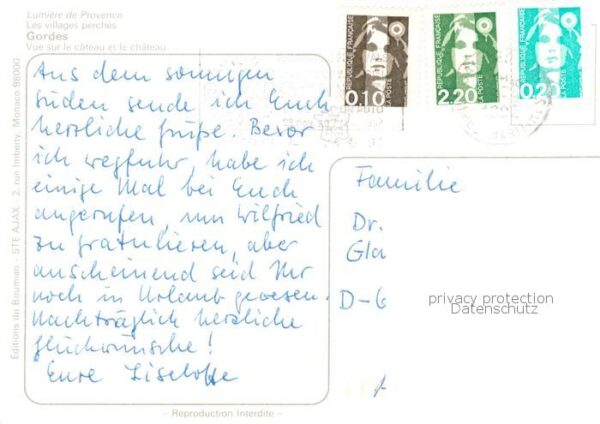 Lumière de Provence
Les villages perchés
Gordes
Vue sur le côteau et le château
Aus dem sonnigen
Süden sende ich Euch
herzliche Grüße. Bevor
ich wegfuhr, habe ich
einige Mal bei Euch
angerufen, um Wilfried
zu gratulieren, aber
anscheinend seid Ihr
noch in Urlaub gewesen.
Nachträglich herzliche
Glückwünsche!
Eure Liselotte
Editions du Bauman - STE AJAX 2, rue Imberty, Monaco 98000
REPUBLIQUE FRANÇAISE
0.10
REPUBLIQUE FRANÇAISE
LA POSTE
2.20
FRANÇAISE
LA POSTE
0.20
Familie
Dr.
Gla
D-G
privacy protection
Datenschutz
- Reproduction Interdite -